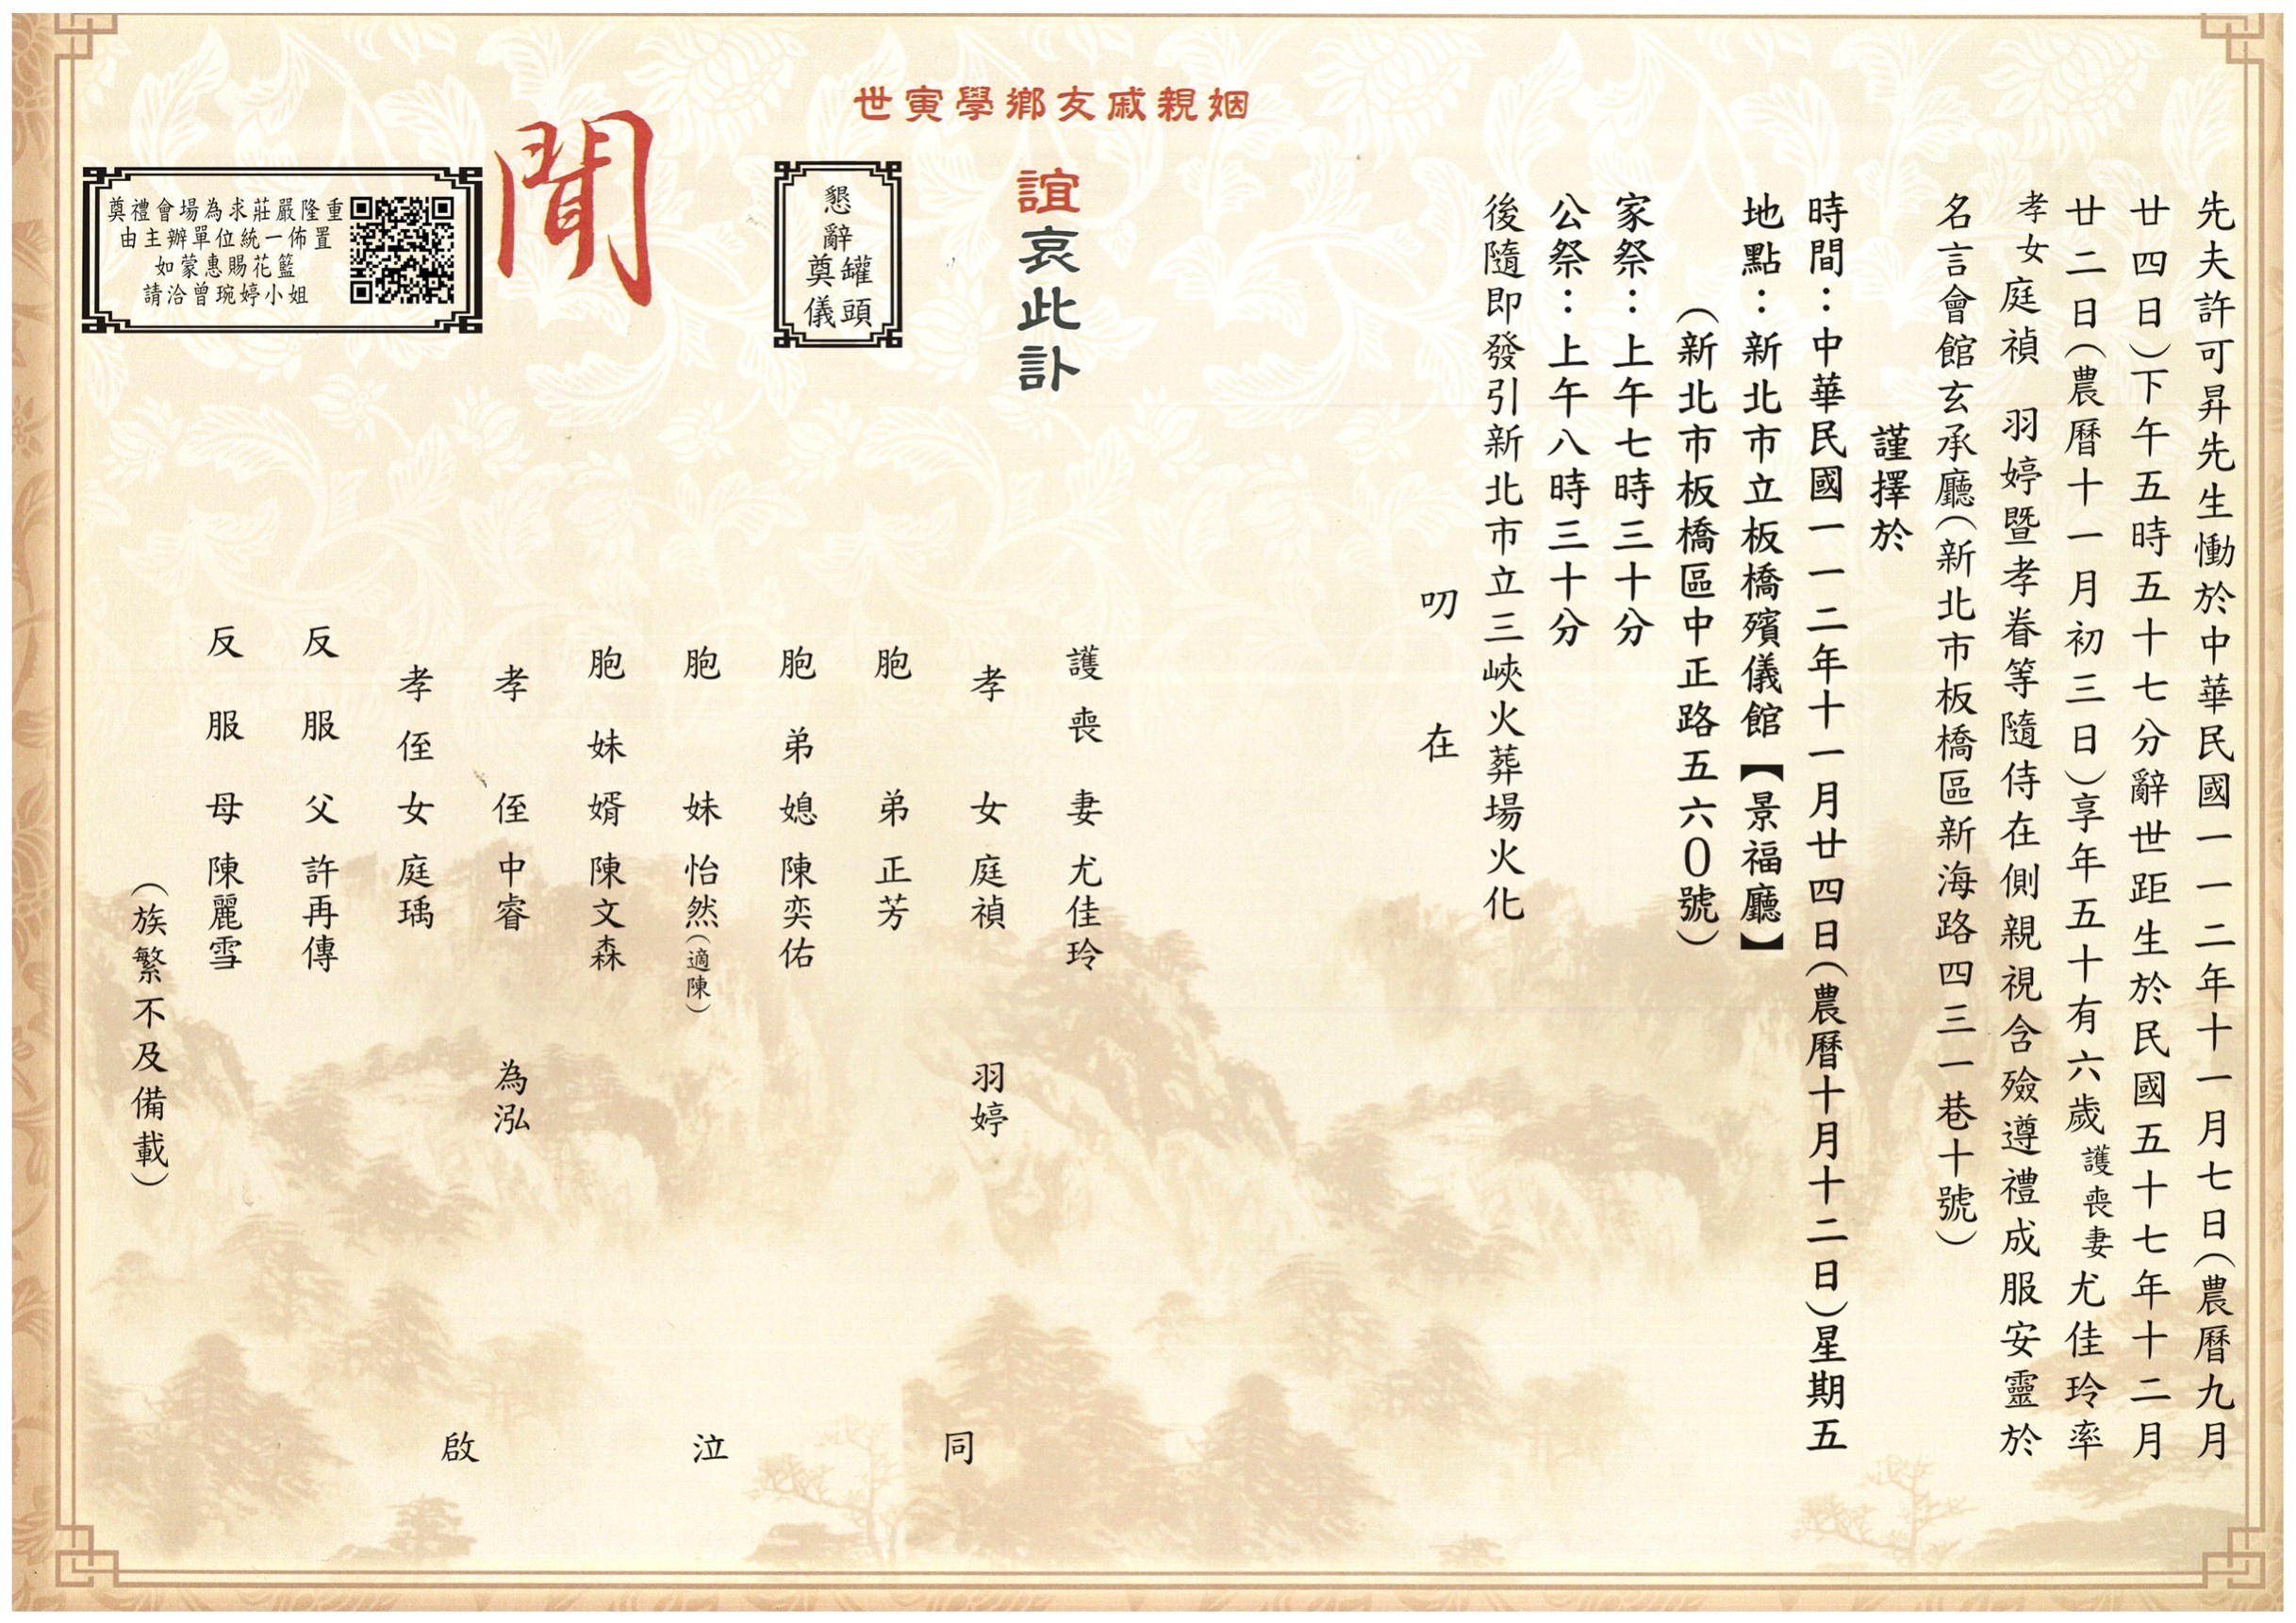 先夫許可昇先生慟於中華民國一一二年十一月七日(農曆九月
廿四日)下午五時五十七分辭世距生於民國五十七年十二月
廿二日(農曆十一月初三日)享年五十有六歲護喪妻尤佳玲率
孝女庭禎 羽婷暨孝眷等隨侍在側親視含殮遵禮成服安靈於
名言會館玄承廳(新北市板橋區新海路四三一巷十號)
謹擇於
時間：中華民國一一二年十一月廿四日(農曆十月十二日)星期五
地點：新北市立板橋殯儀館【景福廳】
(新北市板橋區中正路五六0號)
家祭：上午七時三十分
公祭：上午八時三十分
後隨即發引新北市立三峽火葬場火化
叨 在
姻親戚友鄉學寅世
誼哀此訃
懇辭
罐頭
奠儀
聞
護喪妻 尤佳玲
孝女 庭禎 羽婷
胞弟 正芳
胞弟媳 陳奕佑
胞妹 怡然(適陳)
胞妹婿 陳文森
孝侄 中睿 為泓
孝侄女 庭瑀
反服父 許再傳
反服母 陳麗雪
(族繁不及備載)
同 泣 啟
奠禮會場為求莊嚴隆重
由主辦單位統一佈置
如蒙惠賜花籃
請洽曾琬婷小姐